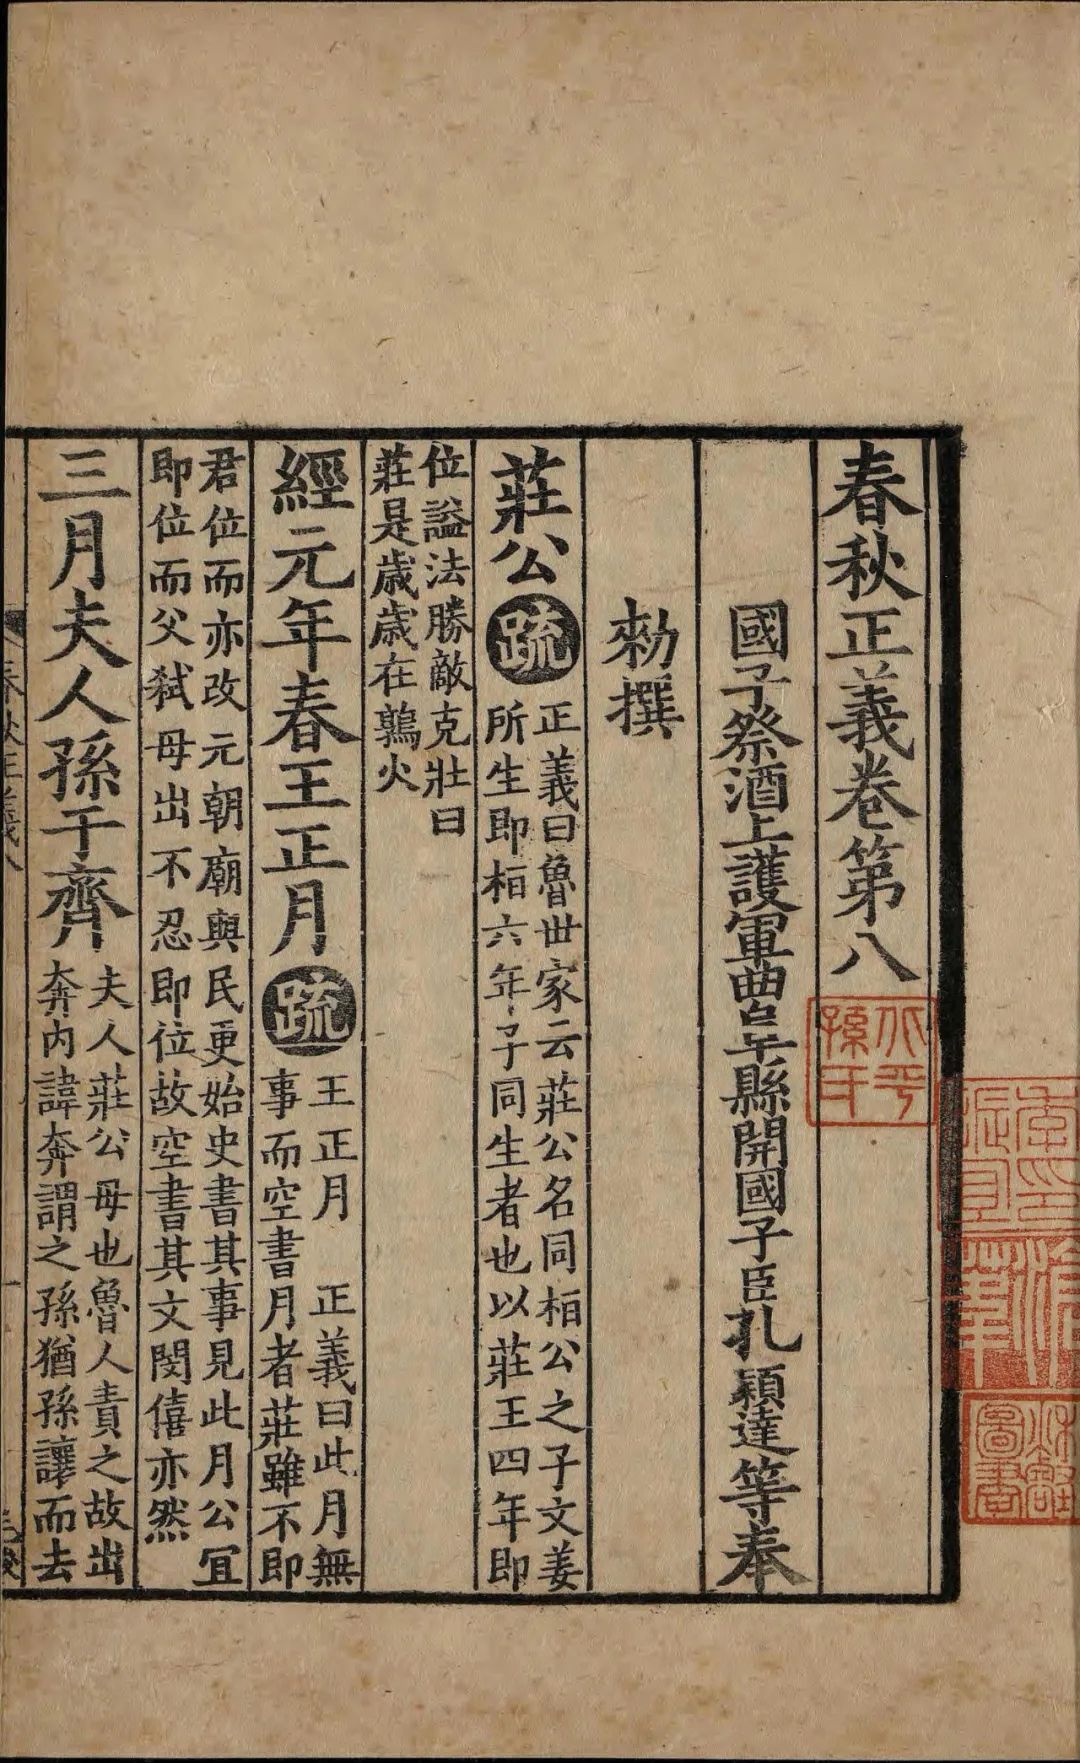 春秋正義卷第八
國子祭酒上護軍曲阜縣開國子臣孔穎達等奉
勑撰
莊公疏
正義曰魯世家云莊公名同桓公之子文姜
所生即桓六年子同生者也以莊王四年即
位謚法勝敵克壯曰
莊是歲歲在鶉火
經元年春王正月疏
王正月 正義曰此月無
事而空書月者莊雖不即
君位而亦改元朝廟與民更始史書其事見此月公宜
即位而父弑母出不忍即位故空書其文閔僖亦然
三月夫人孫于齊
夫人莊公母也魯人責之故出
奔内諱奔謂之孫猶孫讓而去
北平
孫氏
圖書